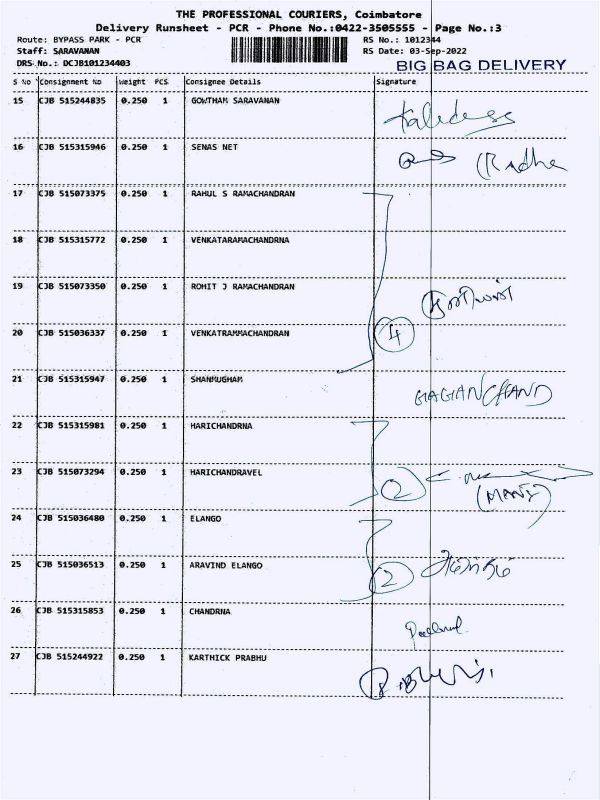 THE PROFESSIONAL COURIERS, Coimbatore
Delivery Runsheet - PCR - Phone No.:0422-3505555 - Page No.:3
Route: BYPASS PARK - PCR
RS No.: 1012344
Staff: SARAVANAN
RS Date: 03-Sep-2022
DRS No.: DCJB101234403
BIG BAG DELIVERY
S No Consignment No Weight PCS Consignee Details Signature
15 CJB 515244835 0.250 1 GOWTHAM SARAVANAN
16 CJB 515315946 0.250 1 SENAS NET (Radha
17 CJB 515073375 0.250 1 RAHUL S RAMACHANDRAN
18 CJB 515315772 0.250 1 VENKATARAMACHANDRNA
19 CJB 515073350 0.250 1 ROHIT J RAMACHANDRAN
20 CJB 515036337 0.250 1 VENKATRAMMACHANDRAN 4
21 CJB 515315947 0.250 1 SHANMUGHAM GAGIANCHAND
22 CJB 515315981 0.250 1 HARICHANDRNA
23 CJB 515073294 0.250 1 HARICHANDRAVEL 2 (MANI)
24 CJB 515036480 0.250 1 ELANGO
25 CJB 515036513 0.250 1 ARAVIND ELANGO 2
26 CJB 515315853 0.250 1 CHANDRNA
27 CJB 515244922 0.250 1 KARTHICK PRABHU